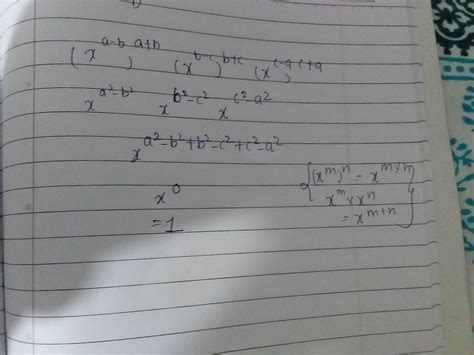 (x^a-b)^a+b (x^b-c)^b+c (x^c-a)^c+a
x^a²-b² x^b²-c² x^c²-a²
x^a²-b²+b²-c²+c²-a²
x^0
=1
{(x^m)^n = x^m×n
x^m × x^n
= x^m+n}